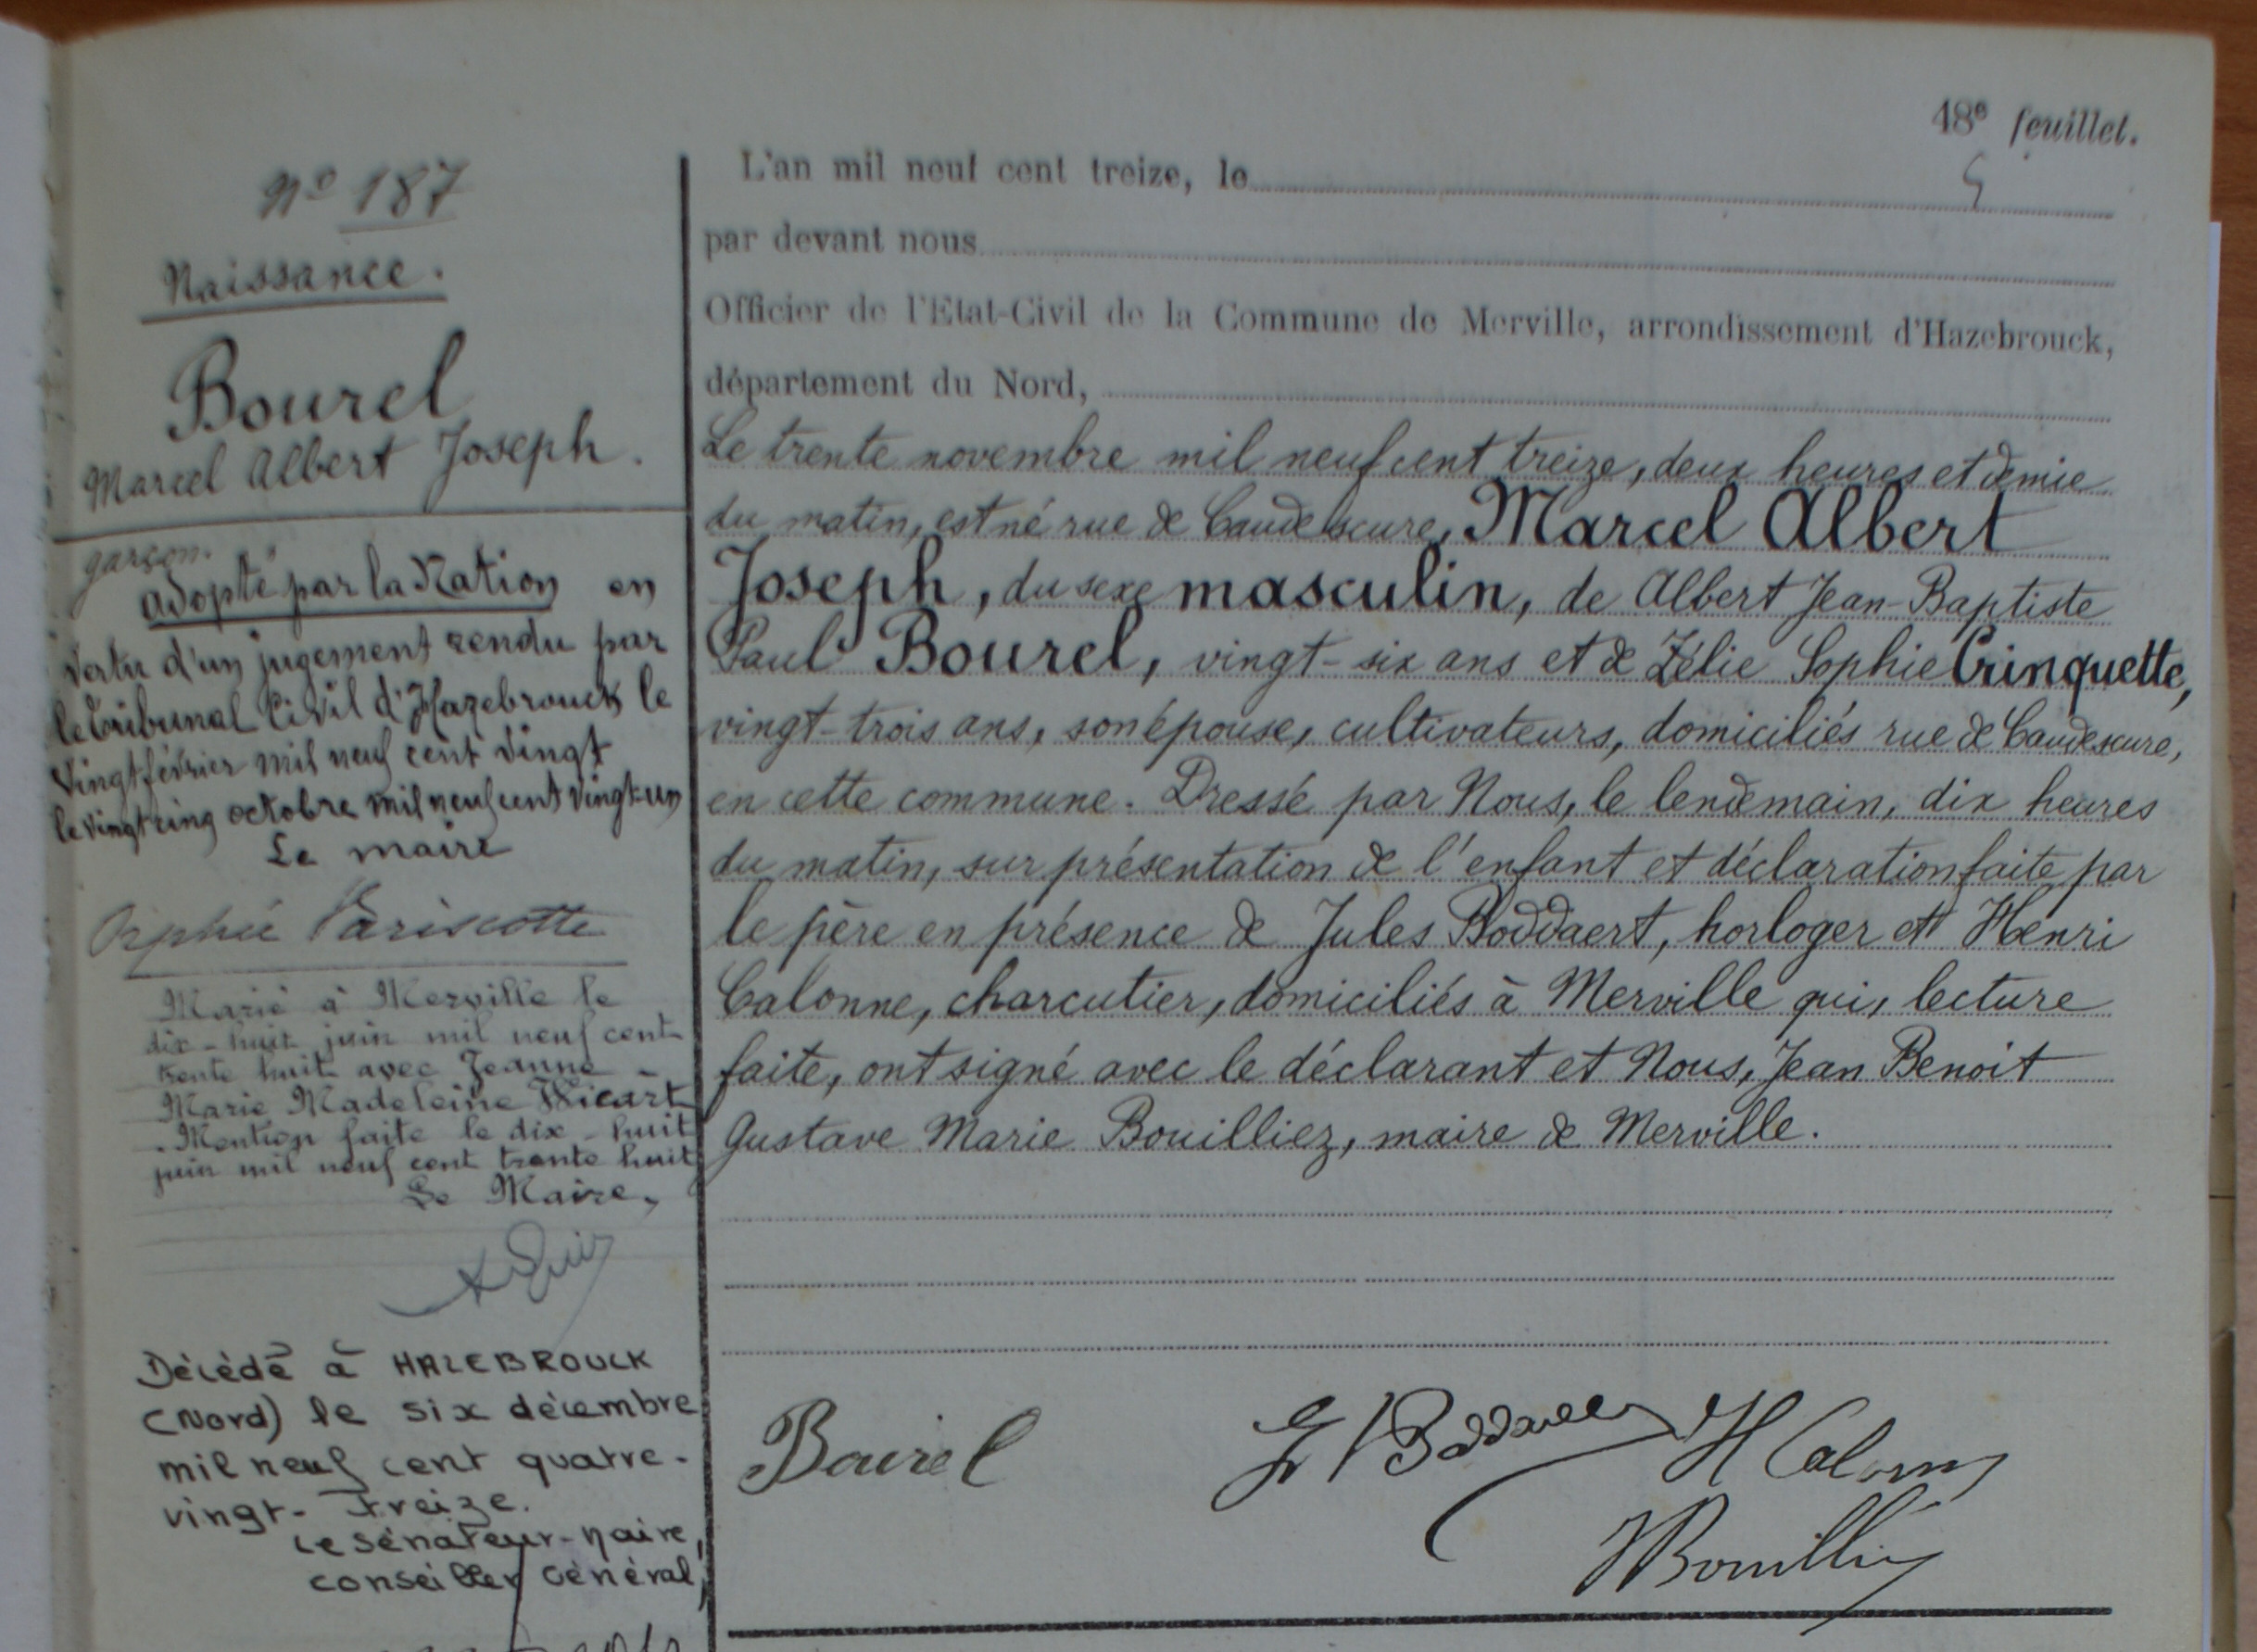 48e feuillet.
Nº 187
Naissance.
Bourel
Marcel Albert Joseph.
garçon.
adopté par la Nation en
vertu d'un jugement rendu par
le Tribunal Civil d'Hazebrouck le
vingt février mil neuf cent vingt
le vingt cinq octobre mil neuf cent vingt-un
Le maire
Orphée Variscotte
Marié à Merville le
dix-huit juin mil neuf cent
trente huit avec Jeanne
Marie Madeleine Wicart
Mention faite le dix-huit
juin mil neuf cent trente huit
Le Maire,
Décédé à HAZEBROUCK
(Nord) le six décembre
mil neuf cent quatre-
vingt-treize.
Le sénateur-maire,
conseiller Général,
L'an mil neuf cent treize, le
par devant nous
Officier de l'Etat-Civil de la Commune de Merville, arrondissement d'Hazebrouck,
département du Nord,
Le trente novembre mil neuf cent treize, deux heures et demie
du matin, est né rue de Caudescure, Marcel Albert
Joseph, du sexe masculin, de Albert Jean-Baptiste
Paul Bourel, vingt-six ans et de Zélie Sophie Crinquette,
vingt-trois ans, son épouse, cultivateurs, domiciliés rue de Caudescure,
en cette commune. Dressé par Nous, le lendemain, dix heures
du matin, sur présentation de l'enfant et déclaration faite par
le père en présence de Jules Boddaert, horloger et Henri
Calonne, charcutier, domiciliés à Merville qui, lecture
faite, ont signé avec le déclarant et Nous, Jean Benoit
Gustave Marie Bouilliez, maire de Merville.
Bourel
Boddaert
H Calonne
Bouilliez